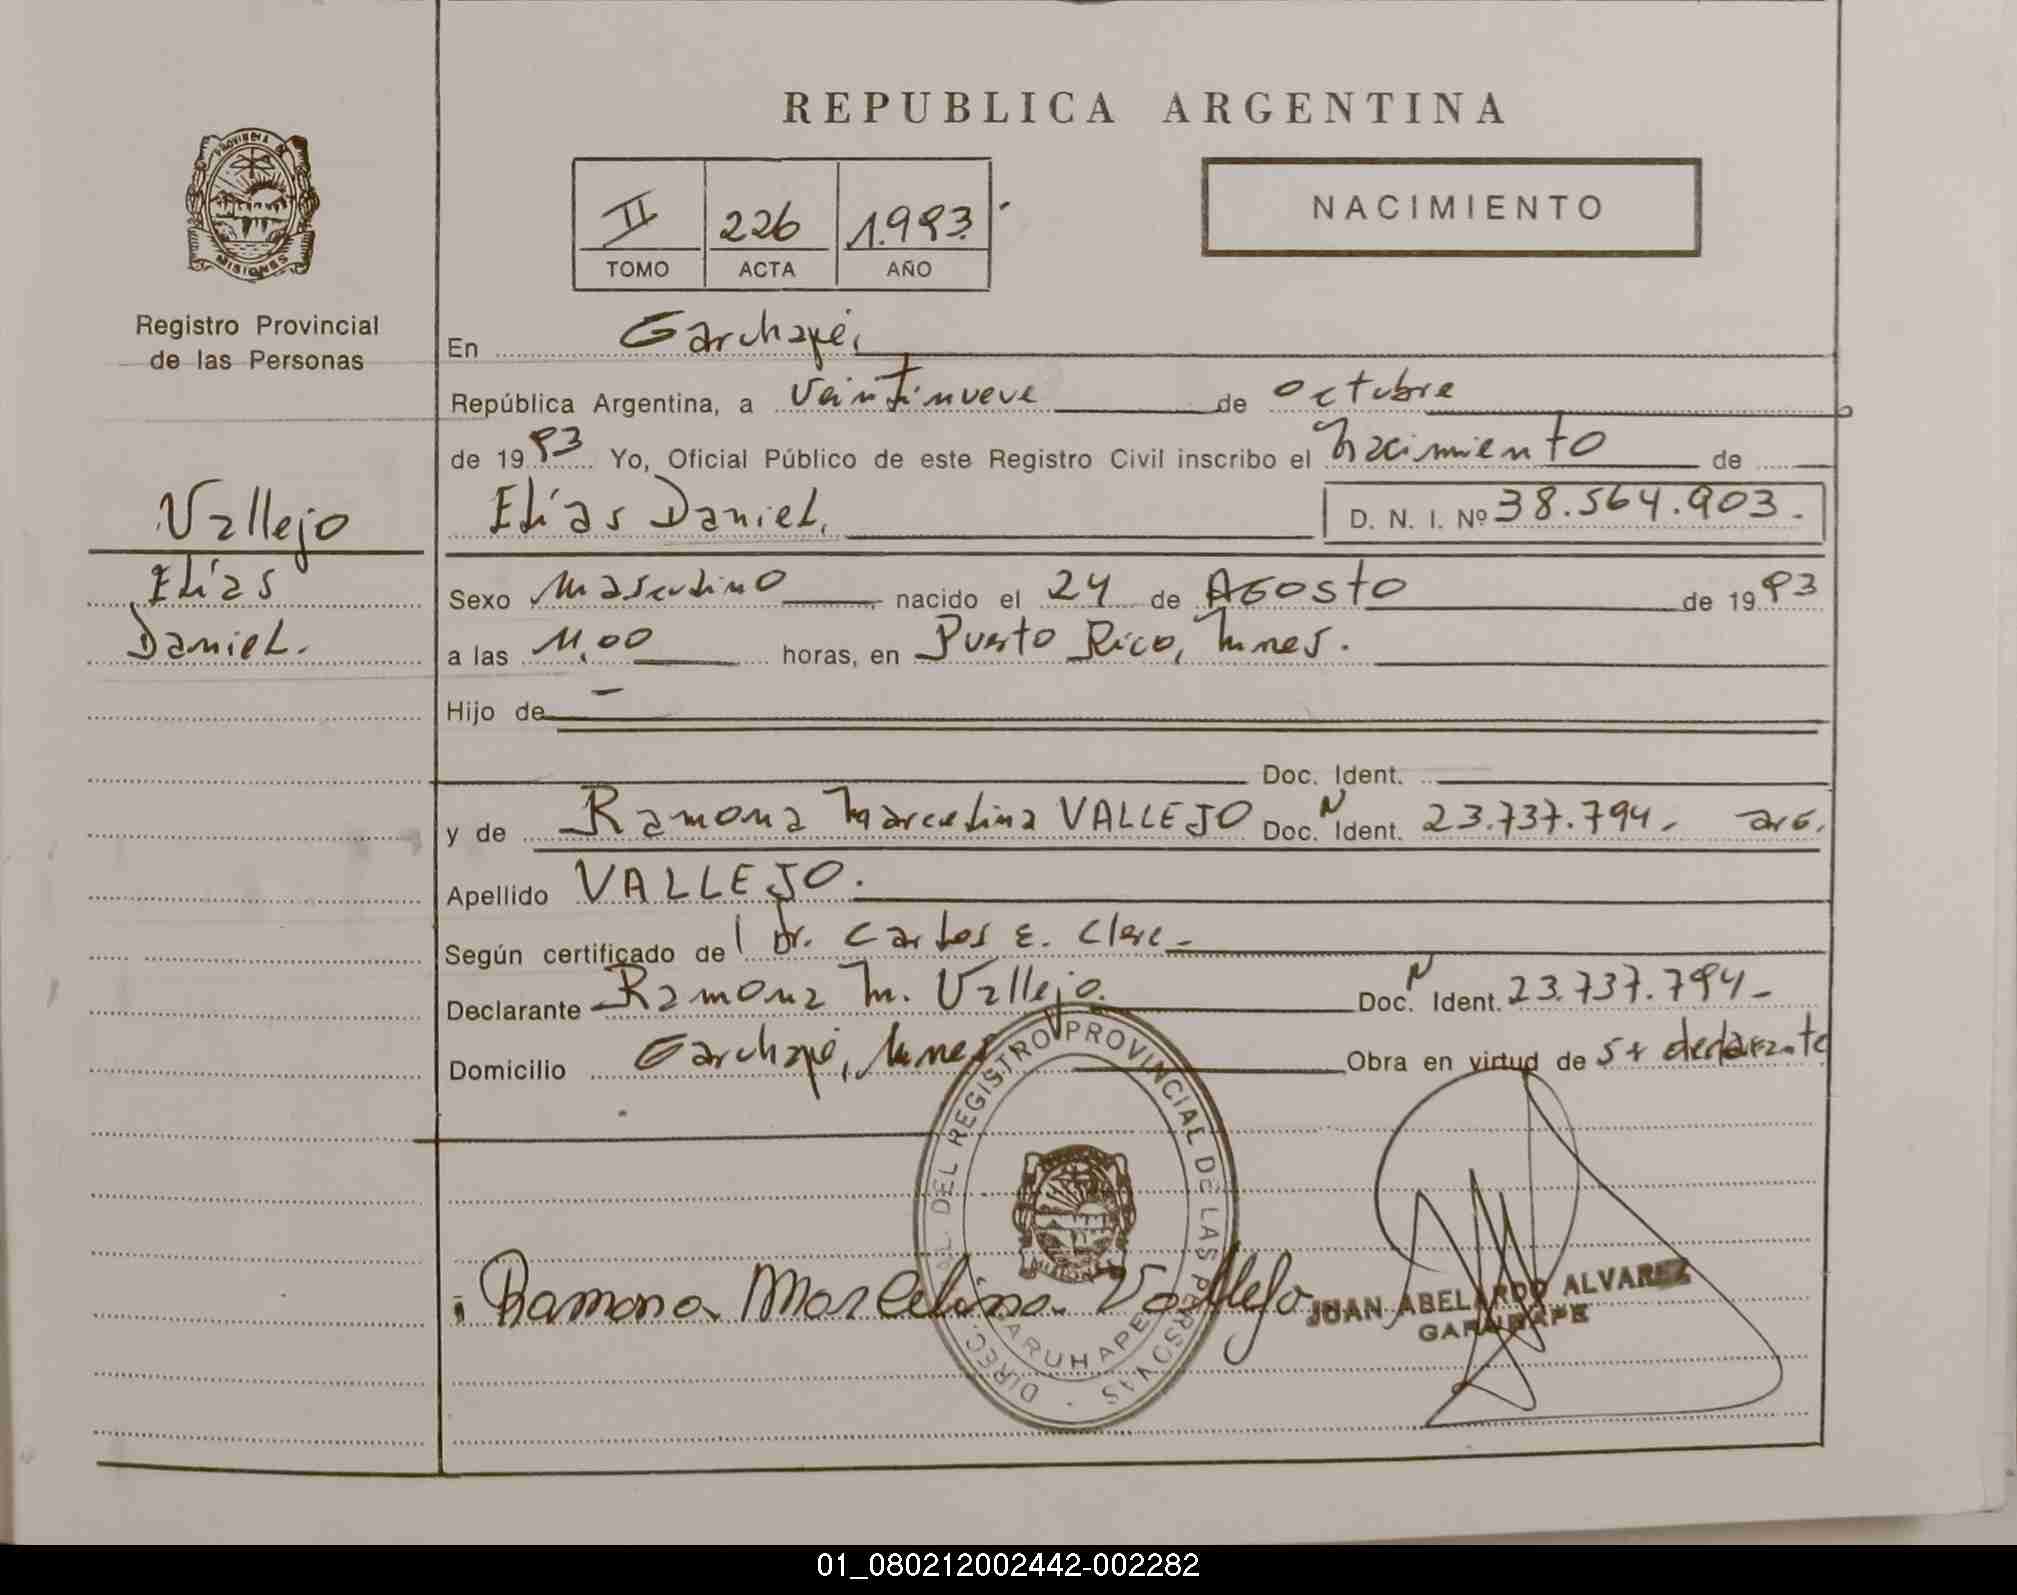 REPUBLICA ARGENTINA
PROVINCIA DE
MISIONES
II 226 1.993.
TOMO ACTA AÑO
NACIMIENTO
Registro Provincial
de las Personas
En Garuhapé,
República Argentina, a Veintinueve de octubre
de 1993 Yo, Oficial Público de este Registro Civil inscribo el Nacimiento de
Elías Daniel. D. N. I. Nº 38.564.903.-
Vallejo
Elías
Daniel.
Sexo Masculino, nacido el 24 de Agosto de 1993
a las 11,00 horas, en Puerto Rico, Mnes.
Hijo de -
Doc. Ident.
y de Ramona Marcelina VALLEJO Doc. N Ident. 23.737.794- arg.
Apellido VALLEJO.
Según certificado del Dr. Carlos E. Clerc-
Declarante Ramona M. Vallejo. Doc. N Ident. 23.737.794-
Domicilio Garuhapé, Mnes Obra en virtud de ser declarante
DIREC. DEL REGISTRO PROVINCIAL DE LAS PERSONAS
GARUHAPE
MISIONES
Ramona Marcelina Vallejo
JUAN ABELARDO ALVAREZ
GARUHAPE
01_080212002442-002282